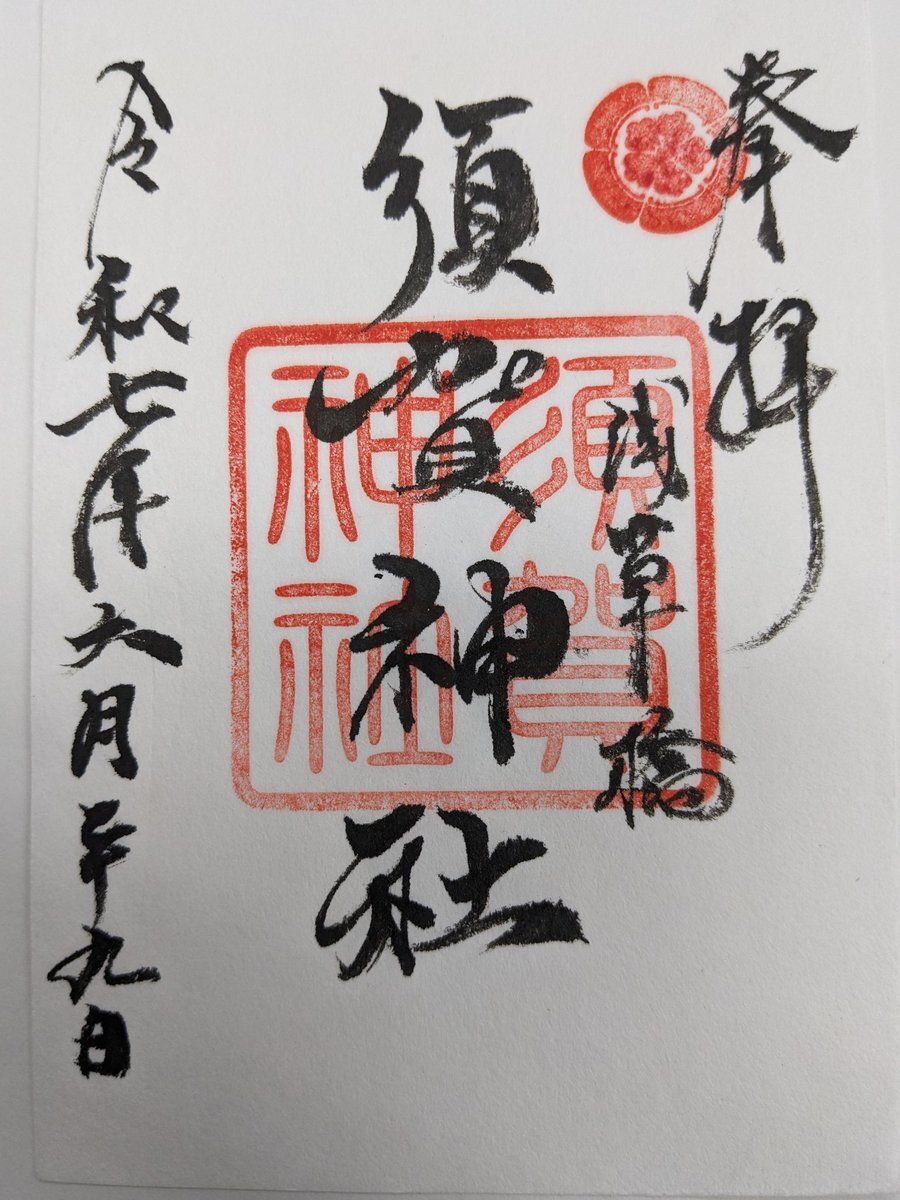 奉拝
浅草橋
須賀神社
須賀
神社
令和七年六月二十九日